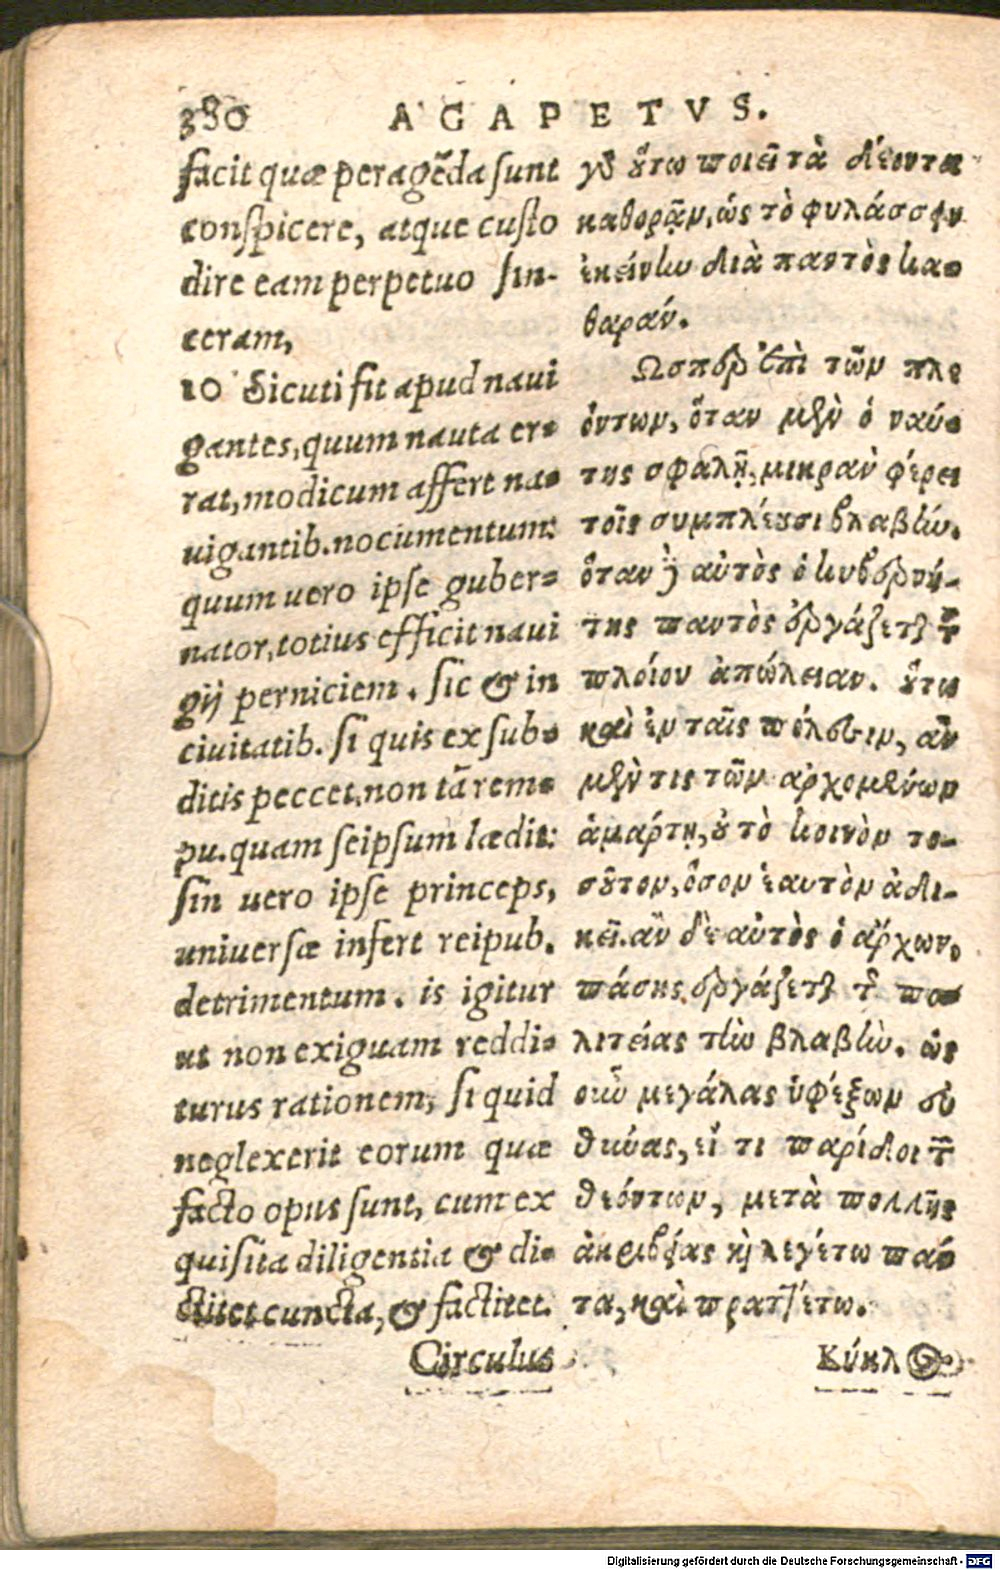 380 AGAPETVS.
facit quæ peragẽda sunt
conspicere, atque custo
dire eam perpetuo sin-
ceram,
10 Sicuti fit apud navi
gantes, quum nauta er-
rat, modicum affert na-
uigantib. nocumentum:
quum uero ipse guber-
nator, totius efficit navi
gij perniciem. sic & in
ciuitatib. si quis ex sub-
ditis peccet, non tã rem-
pu. quam seipsum lædit:
sin uero ipse princeps,
uniuersæ infert reipub.
detrimentum. is igitur
ut non exiguam reddi-
turus rationem, si quid
neglexerit eorum quæ
facto opus sunt, cum ex
quisita diligentia & di-
ctitet cuncta, & factitet.
Circulus
γὸ ὕτω ποιεῖ τὰ δέοντα
καθορᾷν, ὡς τὸ φυλάσσειν
ἐκείνην διὰ παντὸς κα-
θαράν.
Ωσπερ ἐπὶ τῶν πλε
όντων, ὅταν μὲν ὁ ναύ-
της σφαλῇ, μικρὰν φέρει
τοῖς συμπλέουσι βλαβήν.
ὅταν δὲ αὐτὸς ὁ κυβερνή-
της παντὸς ἐργάζεται τοῦ
πλοίου ἀπώλειαν. οὕτω
καὶ ἐν ταῖς πόλεσιν, ἂν
μέν τις τῶν ἀρχομένων
ἁμάρτῃ, οὐ τὸ κοινὸν το-
σοῦτον, ὅσον ἑαυτὸν ἀδι-
κεῖ. ἂν δὲ αὐτὸς ὁ ἄρχων,
πάσης ἐργάζεται τῆς πο-
λιτείας τὴν βλαβήν. ὡς
οὖν μεγάλας ὑφέξων εὐ
θύνας, εἴ τι παρίδοι τῶν
δεόντων, μετὰ πολλῆς
ἀκριβείας καὶ λεγέτω πάν
τα, καὶ πραττέτω.
Κύκλος